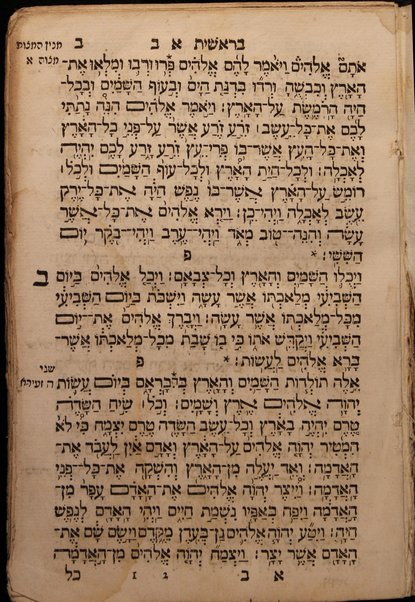 בראשית א ב
ב
מנין המצות
מצוה א
אֹתָם֮ אֱלֹהִים֒ וַיֹּ֨אמֶר לָהֶ֜ם אֱלֹהִ֗ים פְּר֥וּ וּרְב֛וּ וּמִלְא֥וּ אֶת־
הָאָ֖רֶץ וְכִבְשֻׁ֑הָ וּרְד֞וּ בִּדְגַ֤ת הַיָּם֙ וּבְע֣וֹף הַשָּׁמַ֔יִם וּבְכָל־
חַיָּ֖ה הָֽרֹמֶ֥שֶׂת עַל־הָאָֽרֶץ׃ וַיֹּ֣אמֶר אֱלֹהִ֗ים הִנֵּה֩ נָתַ֨תִּי
לָכֶ֜ם אֶת־כָּל־עֵ֣שֶׂב ׀ זֹרֵ֣עַ זֶ֗רַע אֲשֶׁר֙ עַל־פְּנֵ֣י כָל־הָאָ֔רֶץ
וְאֶת־כָּל־הָעֵ֛ץ אֲשֶׁר־בּ֥וֹ פְרִי־עֵ֖ץ זֹרֵ֣עַ זָ֑רַע לָכֶ֥ם יִֽהְיֶ֖ה
לְאָכְלָֽה׃ וּֽלְכָל־חַיַּ֣ת הָ֠אָרֶץ וּלְכָל־ע֨וֹף הַשָּׁמַ֜יִם וּלְכֹ֣ל ׀
רוֹמֵ֣שׂ עַל־הָאָ֗רֶץ אֲשֶׁר־בּוֹ֙ נֶ֣פֶשׁ חַיָּ֔ה אֶת־כָּל־יֶ֥רֶק
עֵ֖שֶׂב לְאָכְלָ֑ה וַֽיְהִי־כֵֽן׃ וַיַּ֤רְא אֱלֹהִים֙ אֶת־כָּל־אֲשֶׁ֣ר
עָשָׂ֔ה וְהִנֵּה־ט֖וֹב מְאֹ֑ד וַֽיְהִי־עֶ֥רֶב וַֽיְהִי־בֹ֖קֶר י֥וֹם
הַשִּׁשִּֽׁי׃ * פ
ב
וַיְכֻלּ֛וּ הַשָּׁמַ֥יִם וְהָאָ֖רֶץ וְכָל־צְבָאָֽם׃ וַיְכַ֤ל אֱלֹהִים֙ בַּיּ֣וֹם
הַשְּׁבִיעִ֔י מְלַאכְתּ֖וֹ אֲשֶׁ֣ר עָשָׂ֑ה וַיִּשְׁבֹּת֙ בַּיּ֣וֹם הַשְּׁבִיעִ֔י
מִכָּל־מְלַאכְתּ֖וֹ אֲשֶׁ֥ר עָשָֽׂה׃ וַיְבָ֤רֶךְ אֱלֹהִים֙ אֶת־י֣וֹם
הַשְּׁבִיעִ֔י וַיְקַדֵּ֖שׁ אֹת֑וֹ כִּ֣י ב֤וֹ שָׁבַת֙ מִכָּל־מְלַאכְתּ֔וֹ אֲשֶׁר־
בָּרָ֥א אֱלֹהִ֖ים לַעֲשֽׂוֹת׃ * פ
שני
ה זעירא
אֵ֣לֶּה תוֹלְד֧וֹת הַשָּׁמַ֛יִם וְהָאָ֖רֶץ בְּהִבָּֽרְאָ֑ם בְּי֗וֹם עֲשׂ֛וֹת
יְהוָ֥ה אֱלֹהִ֖ים אֶ֥רֶץ וְשָׁמָֽיִם׃ וְכֹ֣ל ׀ שִׂ֣יחַ הַשָּׂדֶ֗ה
טֶ֚רֶם יִֽהְיֶ֣ה בָאָ֔רֶץ וְכָל־עֵ֥שֶׂב הַשָּׂדֶ֖ה טֶ֣רֶם יִצְמָ֑ח כִּי֩ לֹ֨א
הִמְטִ֜יר יְהוָ֤ה אֱלֹהִים֙ עַל־הָאָ֔רֶץ וְאָדָ֣ם אַ֔יִן לַֽעֲבֹ֖ד אֶת־
הָֽאֲדָמָֽה׃ וְאֵ֖ד יַֽעֲלֶ֣ה מִן־הָאָ֑רֶץ וְהִשְׁקָ֖ה אֶֽת־כָּל־פְּנֵ֥י
הָֽאֲדָמָֽה׃ וַיִּיצֶר֩ יְהוָ֨ה אֱלֹהִ֜ים אֶת־הָֽאָדָ֗ם עָפָר֙ מִן־
הָ֣אֲדָמָ֔ה וַיִּפַּ֥ח בְּאַפָּ֖יו נִשְׁמַ֣ת חַיִּ֑ים וַֽיְהִ֥י הָֽאָדָ֖ם לְנֶ֥פֶשׁ
חַיָּֽה׃ וַיִּטַּ֞ע יְהוָ֧ה אֱלֹהִ֛ים גַּן־בְּעֵ֖דֶן מִקֶּ֑דֶם וַיָּ֣שֶׂם שָׁ֔ם אֶת־
הָֽאָדָ֖ם אֲשֶׁ֥ר יָצָֽר׃ וַיַּצְמַ֞ח יְהוָ֤ה אֱלֹהִים֙ מִן־הָ֣אֲדָמָ֔ה
א ב 2 1 כל